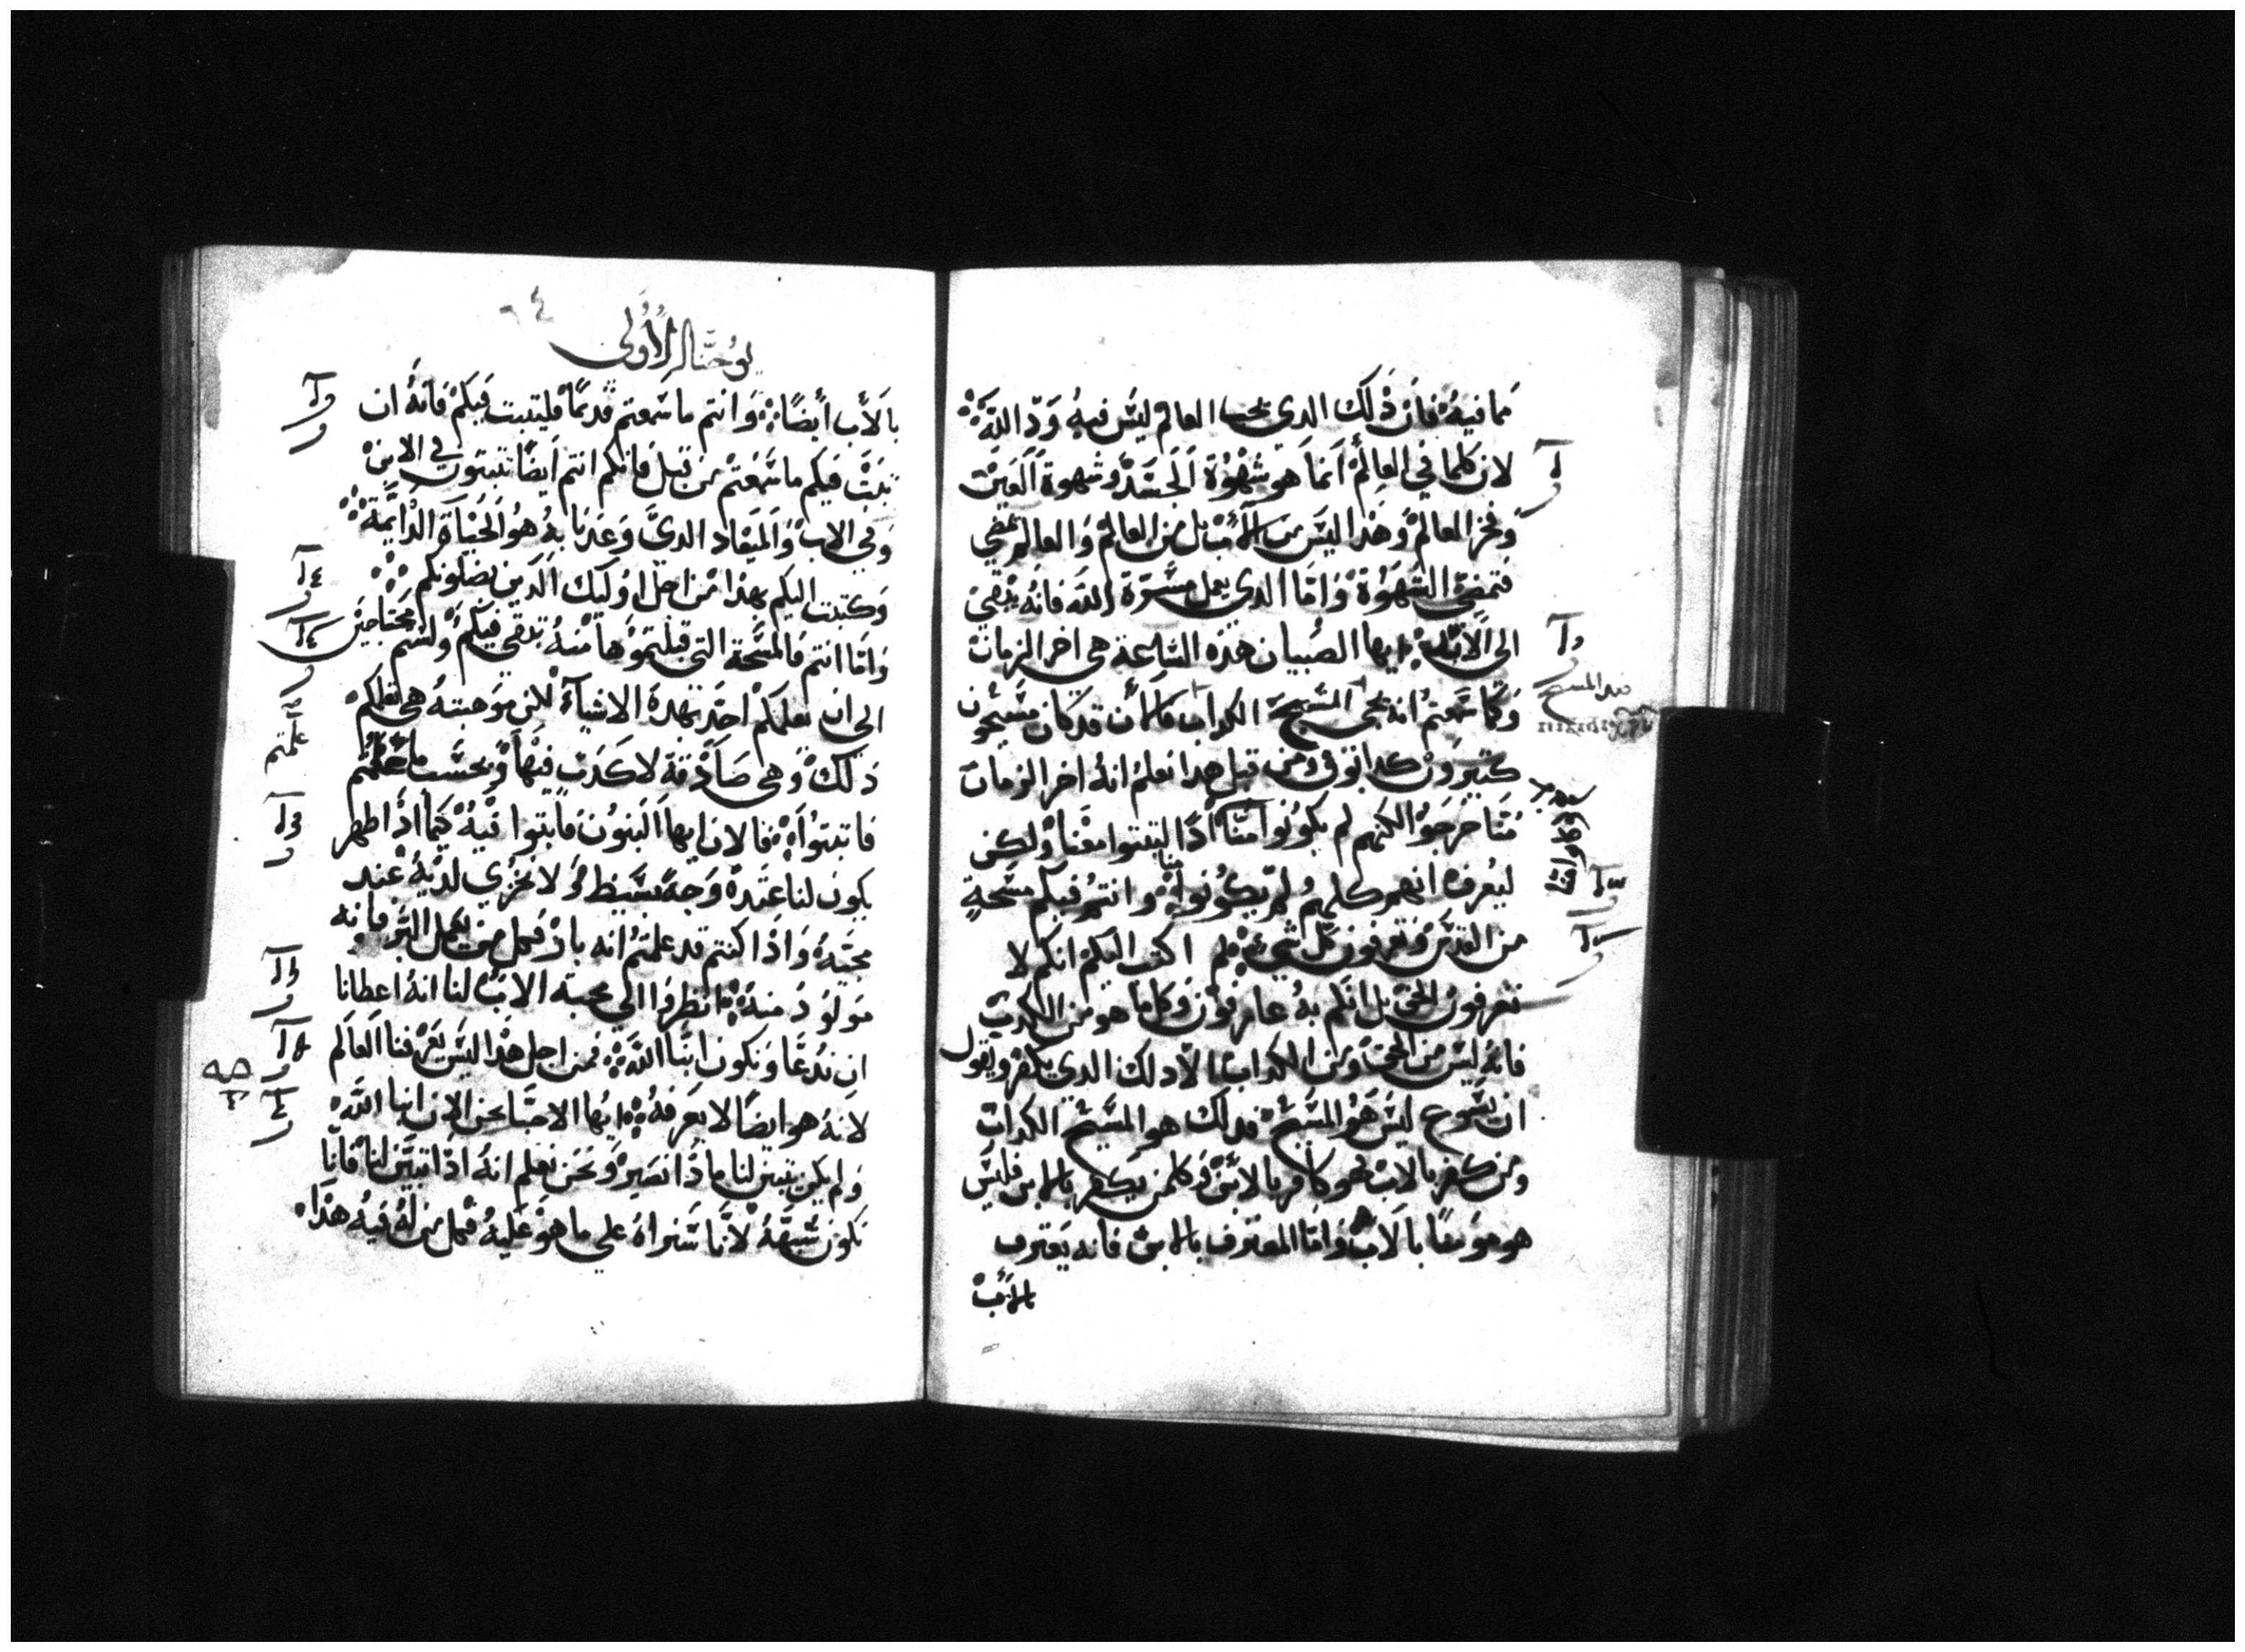 مما فيهُ فان ذٰلك الدي يحب العالم ليس فيهُ وَدّ اللهَ
لان كلما في العالم انما هو شهوة الجسد وشهوة العين
وفخر العالم وهدا ليس من الاب بل من العالم والعالم يمضي
فتمضي الشهوة واما الدي يعمل مسرة الله فانه يبقي
الي الابد ايها الصبيان هذه الساعة هي اخر الزمان
وكما سمعتم انه يجي المسيح الكداب فالان قد كان مسيحون
كتيرون كدابون ومن قبل هدا نعلم انه اخر الزمان
منا خرجوا لكنهم لم يكونوا منا ادا لتبتوا معنا ولكن
ليعرف انهم كلهم لم يكونوا منا وانتم فيكم مسحة
من القدس وتعرفون كل شي لم اكتب اليكم انكم لا
تعرفون الحق بل انكم به عارفون وكلما هو من الكدب
فانه ليس من الحق ومن الكداب الا دلك الدي يكفر ويقول
ان يسوع ليس هو المسيح فدلك هو المسيح الكداب
ومن كفر بالاب فهو كافر بالابن وكلمن يكفر بالابن فليس
هو مومنا بالاب واما المعترف بالابن فانه يعترف
بالاب
يوحنا الاولي
٦٤
بالاب ايضا وانتم ما سمعتم قديما فليتبت فيكم فانه ان
تبت فيكم ما سمعتم من قبل فانكم انتم ايضا تتبتون في الابن
وفي الاب والميعاد الدي وعدنا به هو الحياة الدايمة
وكتبت اليكم بهدا من اجل اوليك الدين يضلونكم
واما انتم فالمسحة التي قبلتموها منه تبقي فيكم ولستم محتاجين
الي ان يعلمكم احد بهده الاشياء لكن موهبته هي تعلمكم
دلك وهي صادقة لا كدب فيها وبحسب ما علمتم
فاتبتوا فالان ايها البنون فاتبتوا فيه كيما ادا اظهر
يكون لنا عنده وجه بسيط ولا نخزي لديه عند
مجيه وادا كنتم قد علمتم انه بار فكل من يعمل البر فانه
مولود منه انظروا الي محبة الاب لنا انه اعطانا
ان ندعا ونكون ابنا الله فمن اجل هدا ليس يعرفنا العالم
لانه هو ايضا لا يعرفه ايها الاحبا نحن الان ابنا الله
ولم يكن يتبين لنا مادا نصير ونحن نعلم انه ادا تبين لنا فانا
نكون شبهه لانا سنراه علي ما هو عليه فكل من له فيه هدا
علمتم